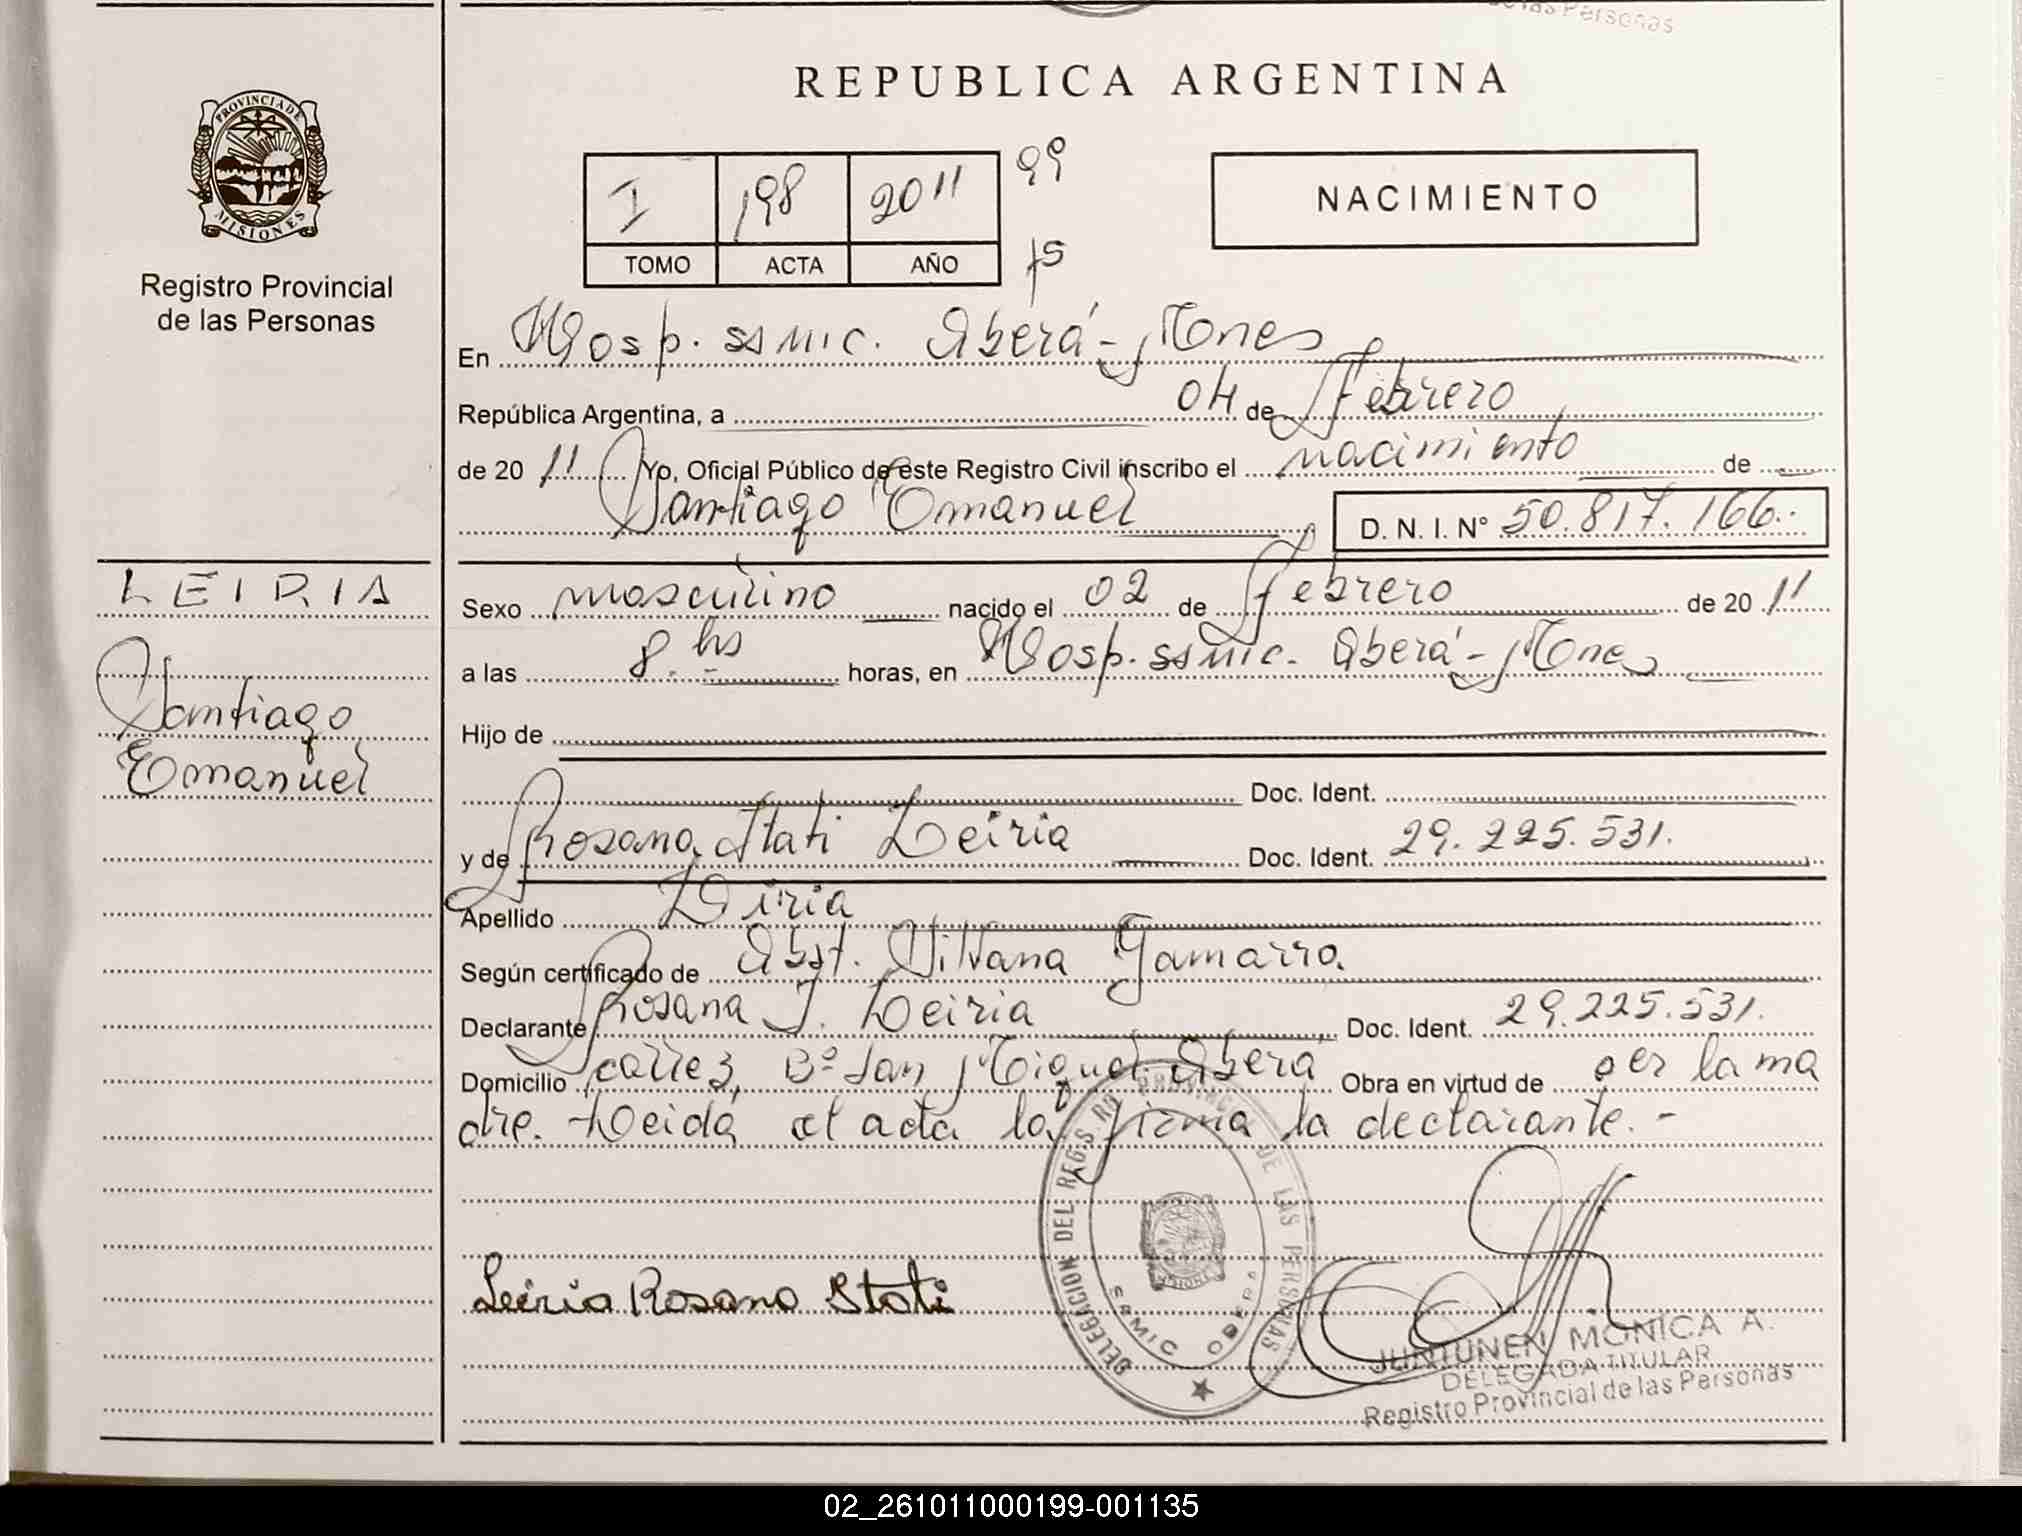 de las Personas
REPUBLICA ARGENTINA
PROVINCIA DE
MISIONES
Registro Provincial
de las Personas
I 198 2011 99
TOMO ACTA AÑO 15
NACIMIENTO
En Hosp. SAMIC. Oberá - Mones
República Argentina, a 04 de Febrero
de 20 11 Yo, Oficial Público de este Registro Civil inscribo el nacimiento de
Santiago Emanuel D. N. I. N° 50.817.166.
LEIRIA
Santiago
Emanuel
Sexo masculino nacido el 02 de febrero de 20 11
a las 8. hs horas, en Hosp. SAMIC. Oberá - Mones
Hijo de
Doc. Ident.
y de Rosana Itati Leiria Doc. Ident. 29.225.531.
Apellido Leiria
Según certificado de Obst. Silvana Gamarra.
Declarante Rosana I. Leiria Doc. Ident. 29.225.531.
Domicilio calle 3, B° San Miguel. Oberá Obra en virtud de ser la ma
dre. Leida el acta la firma la declarante. -
Leiria Rosana Itati
DELEGACION DEL REGIS. PROVINCIAL DE LAS PERSONAS
SAMIC OBERA
JUNTUNEN MONICA A.
DELEGADA TITULAR
Registro Provincial de las Personas
02_261011000199-001135